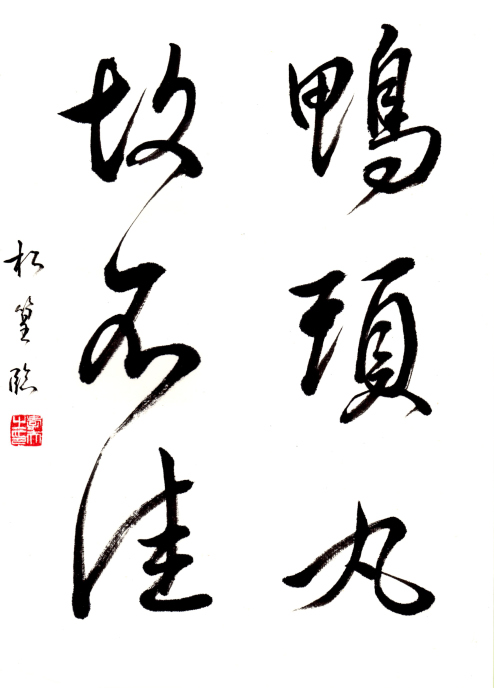 鴨頭丸
故不佳
松篁臨